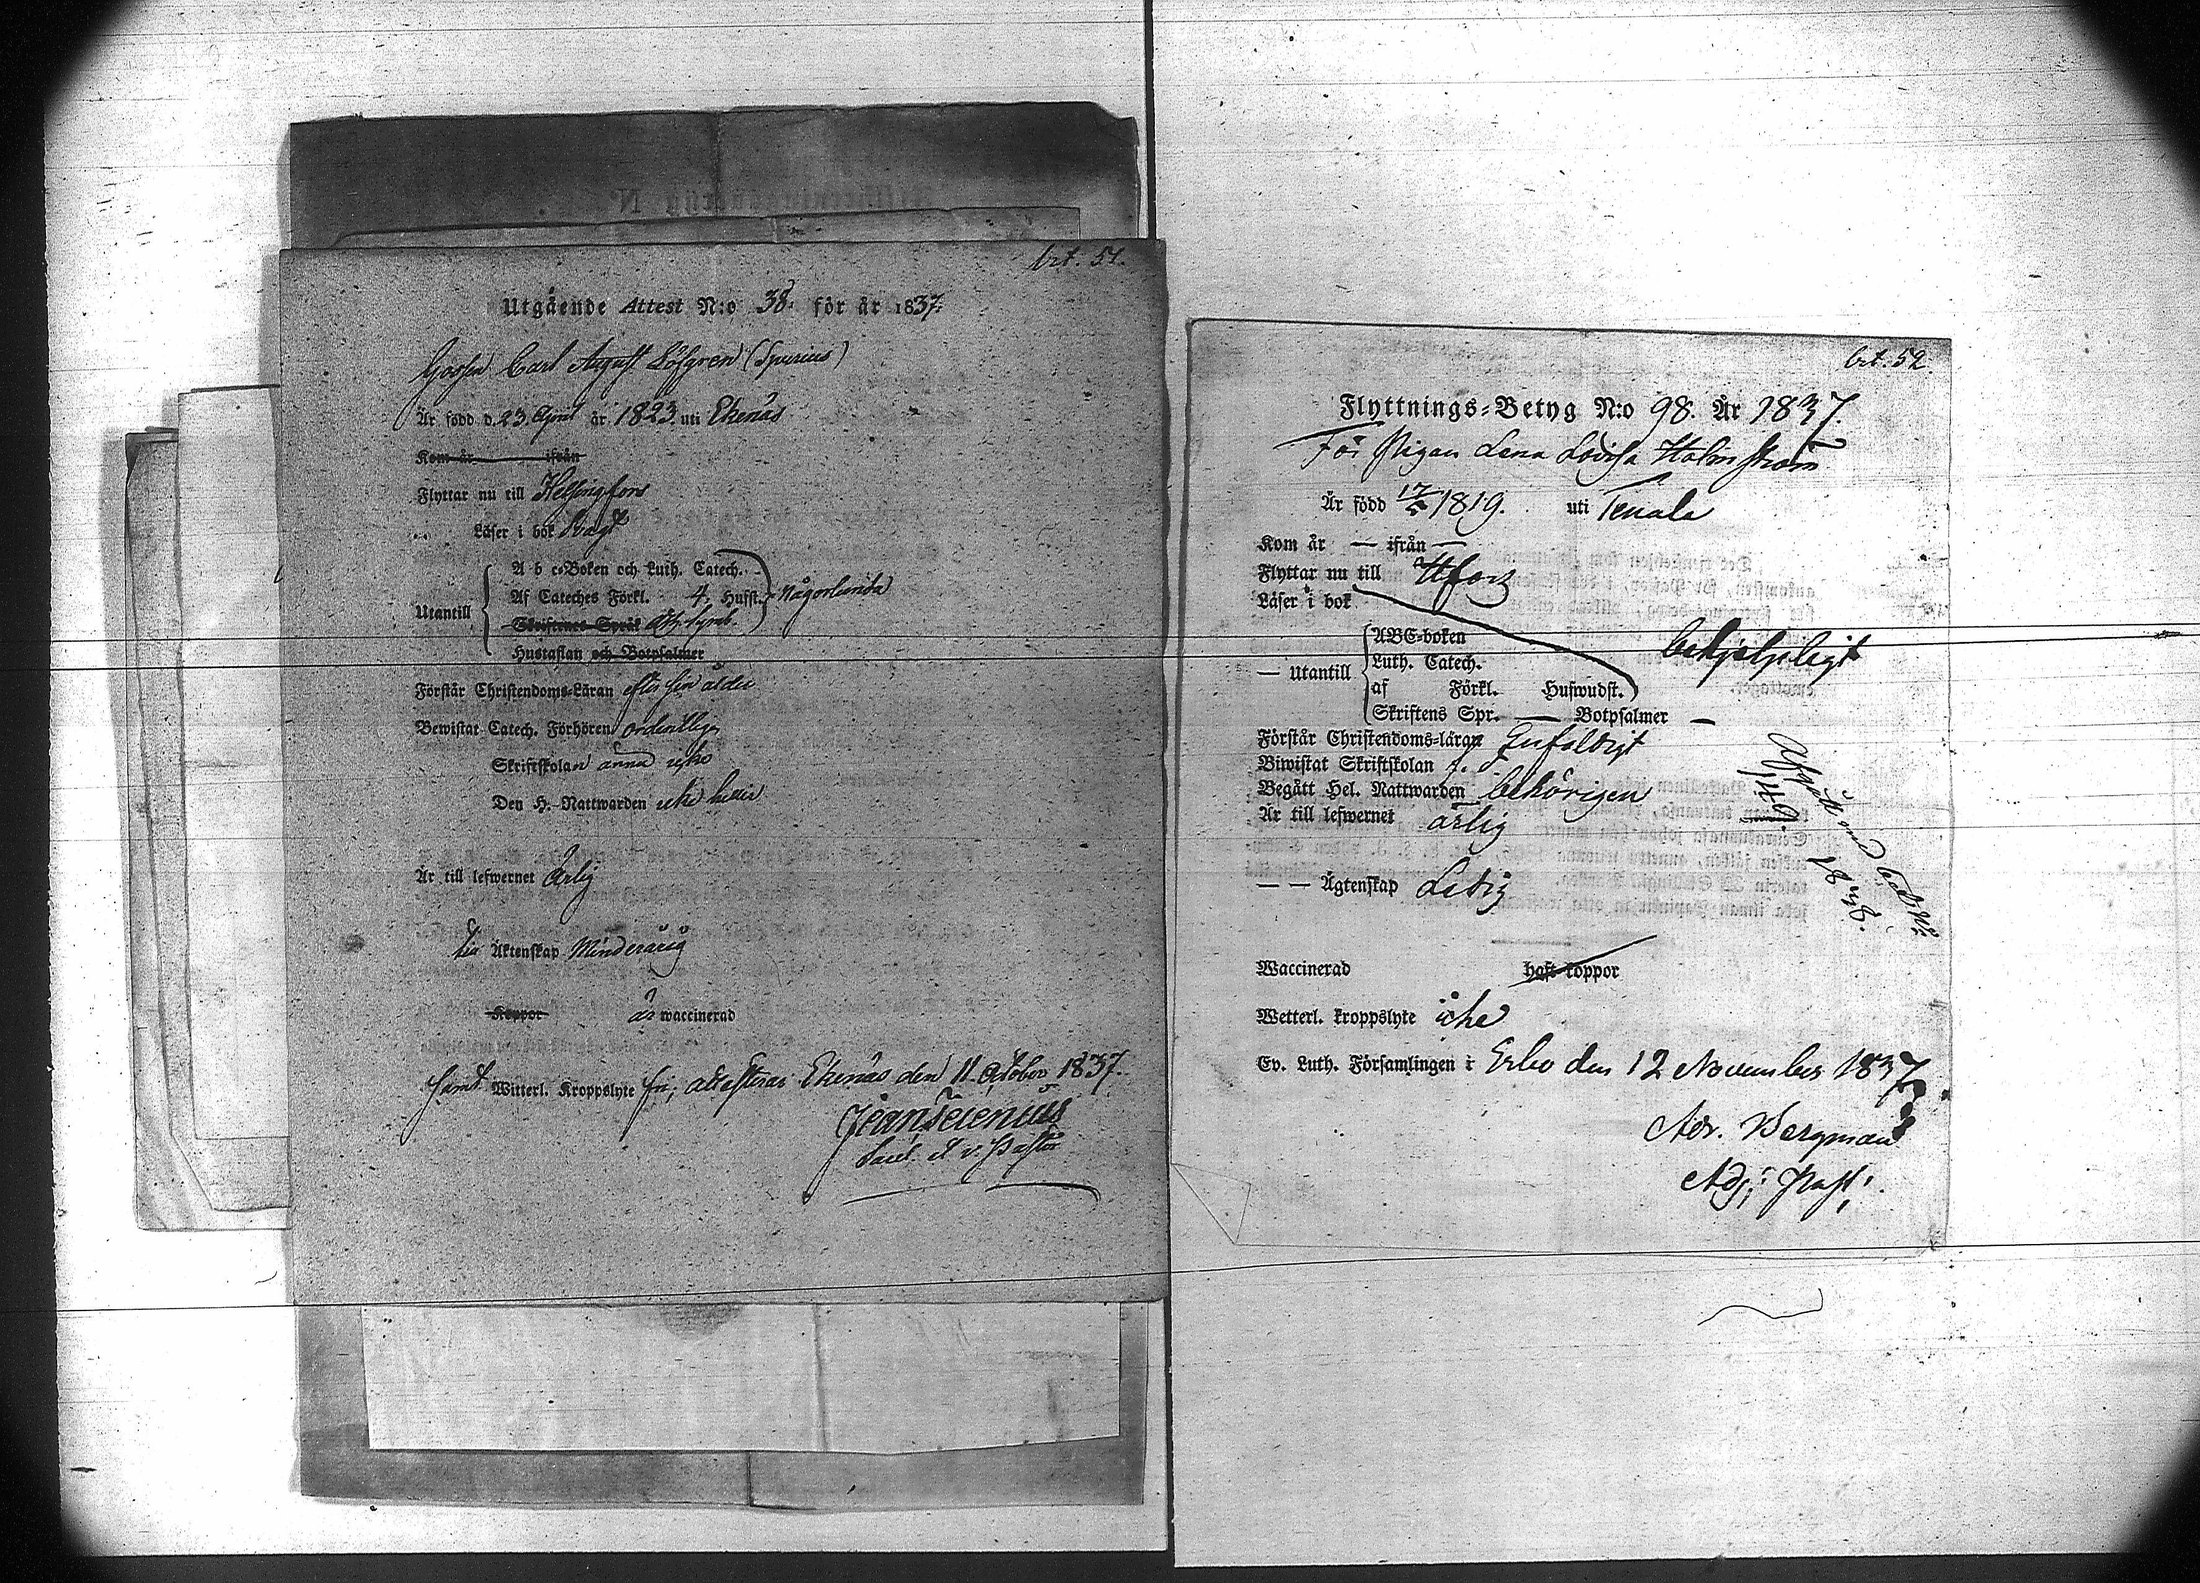 bet. 51.
Utgående Attest N:o 38. för år 1837.
Gossen Carl August Löfgren (Spurius)
Är född d. 23 April år 1823 uti Ekenäs
Kom år ifrån
Flyttar nu till Helsingfors
Läser i bok Svagt
A b c-Boken och Luth. Catech.
Utantill Af Cateches Förkl. 4. Hufst. någorlunda
Skriftenes Språk Ath. Symb.
Hustaflan och Botpsalmer
Förstår Christendoms-Läran efter sin ålder
Bewistat Catech. Förhören ordentligt
Skriftskolan ännu icke
Den H. Nattwarden icke heller
Är till lefwernet Ärlig
till Äktenskap Minderårig
Koppor är waccinerad
samt Witterl. Kroppslyte fri; attesteras Ekenäs den 11 October 1837.
v. Pastor
bet. 52.
Flyttnings-Betyg N:o 98. År 1837.
För Pigan Lena Lovisa Holmström
Är född 17/5 1819. uti Tenala
Kom år — ifrån —
Flyttar nu till Hfors
Läser i bok
ABC-boken
— Utantill Luth. Catech. behjelpligt
af Förkl. Hufwudst.
Skriftens Spr. — Botpsalmer —
Förstår Christendoms-läran Enfaldigt
Biwistat Skriftskolan
Begått Hel. Nattwarden behörigen
Är till lefwernet ärlig
— — Ägtenskap Ledig
Afgått med bet. No
149. 1838.
Waccinerad haft koppor
Wetterl. kroppslyte icke
Ev. Luth. Församlingen i Esbo den 12 November 1837
Adr. Bergman
Adj: Past: